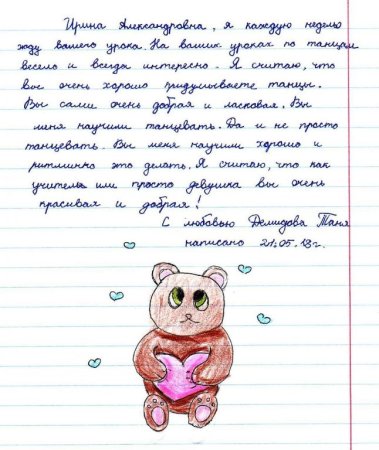 Ирина Александровна, я каждую неделю
жду вашего урока. На ваших уроках по танцам
весело и всегда интересно. Я считаю, что
вы очень хорошо придумываете танцы.
Вы сами очень добрая и ласковая. Вы
меня научили танцевать. Да и не просто
танцевать. Вы меня научили хорошо и
ритмично это делать. Я считаю, что как
учитель или просто девушка вы очень
красивая и добрая!
С любовью Демидова Таня
написано 21.05.13г.